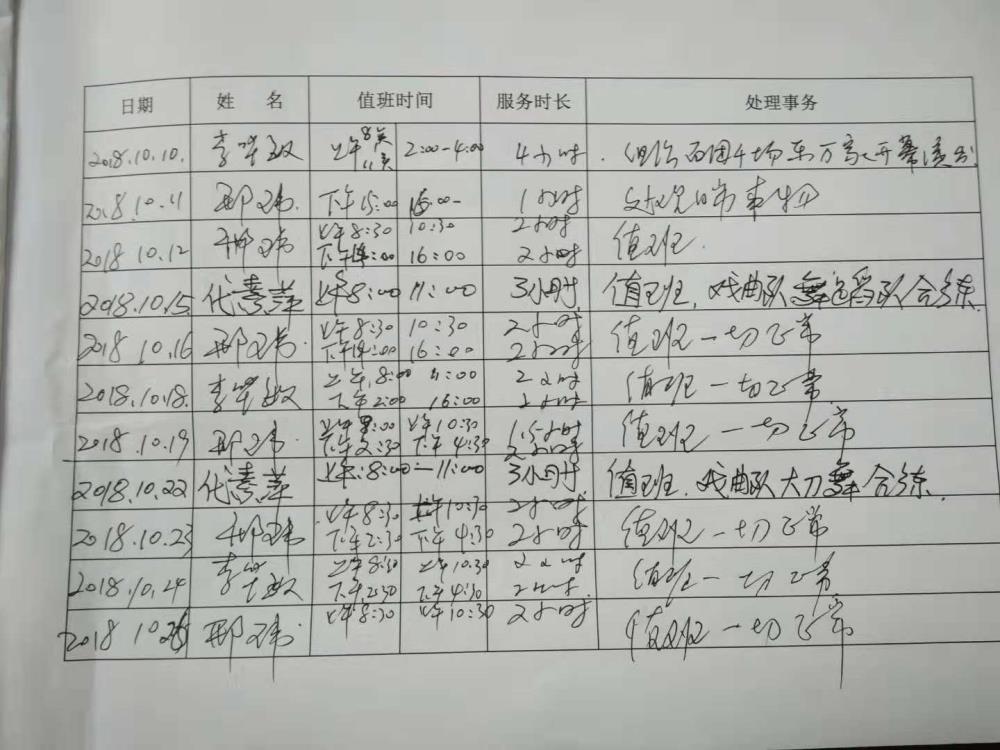 日期 姓 名 值班时间 服务时长 处理事务
2018.10.10. 李 敏 上午8 2:00-4:00 4小时
2018.10.11 邢玮. 下午15:00 1小时
2018 10.12 邢玮. 上午8:30 10:30 2小时 值班.
下午14:00 16:00 2小时
2018.10.15 代素萍 上午8:00 11:00 3小时 值班. 戏曲队舞蹈队合练.
2018 10.16 邢玮. 上午8:30 10:30 2小时 值班一切正常
下午14:00 16:00 2小时
2018.10.18. 李 敏 上午.8:00 11:00 2小时 值班一切正常
下午2:00 16:00 2小时
2018 10.19 邢玮. 上午 :00 上午10:30 1.5小时 值班一切正常
下午2:30 下午4:30 2小时
2018.10.22 代素萍 上午:8:00-11:00 3小时 值班. 戏曲队大刀舞合练.
2018.10.23 邢玮 上午8:30 上午10:30 2小时 值班一切正常
下午2:30 下午4:30 2小时
2018.10.24 李 敏 上午8:30 上午10.30 2小时 值班一切正常
下午2:30 下午4:30 2小时
2018 10 邢玮. 上午8:30 上午10:30 2小时 值班一切正常